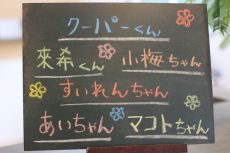 クーパーくん
來希くん 小梅ちゃん
すいれんちゃん
あいちゃん マコトちゃん